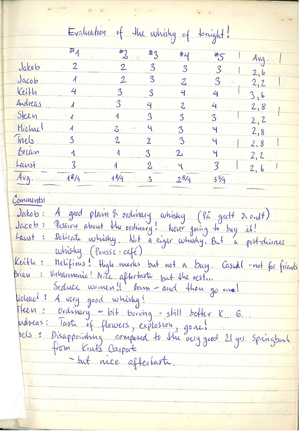 Evaluation of the whisky of tonight!
#1 #2 #3 #4 #5 Avg.
Jakob 2 2 3 3 3 2,6
Jacob 1 2 3 2 3 2,2
Keith 4 3 3 4 4 3,6
Andreas 1 3 4 2 4 2,8
Steen 1 1 3 3 3 2,2
Michael 1 2 4 3 4 2,8
Troels 3 2 2 3 4 2,8
Brian 1 1 3 2 4 2,2
Laust 3 1 2 4 3 2,6
Avg. 3
Comments
Jakob: A good plain & ordinary whisky
Jacob: Passion about the ordinary! Never going to buy it!
Laust: Delicate whisky. Not a cigar whisky. But a post-dinner
whisky (Pousse-café)
Keith: High marks but not a boy. Casual - not for friends
Brian: Nice aftertaste but the rest...
Seduce women!! Bam - and then go one!
Michael: A very good whisky!
Steen: Ordinary - bit boring - still better K.. 6..
Andreas: Taste of flowers, explosion, gone!
Troels: Disappointing compared to the very good 21 yrs. Springbank
from
- but nice aftertaste.